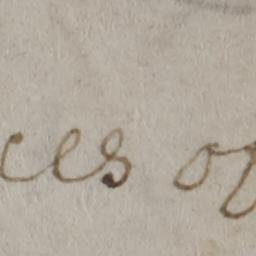 ces of